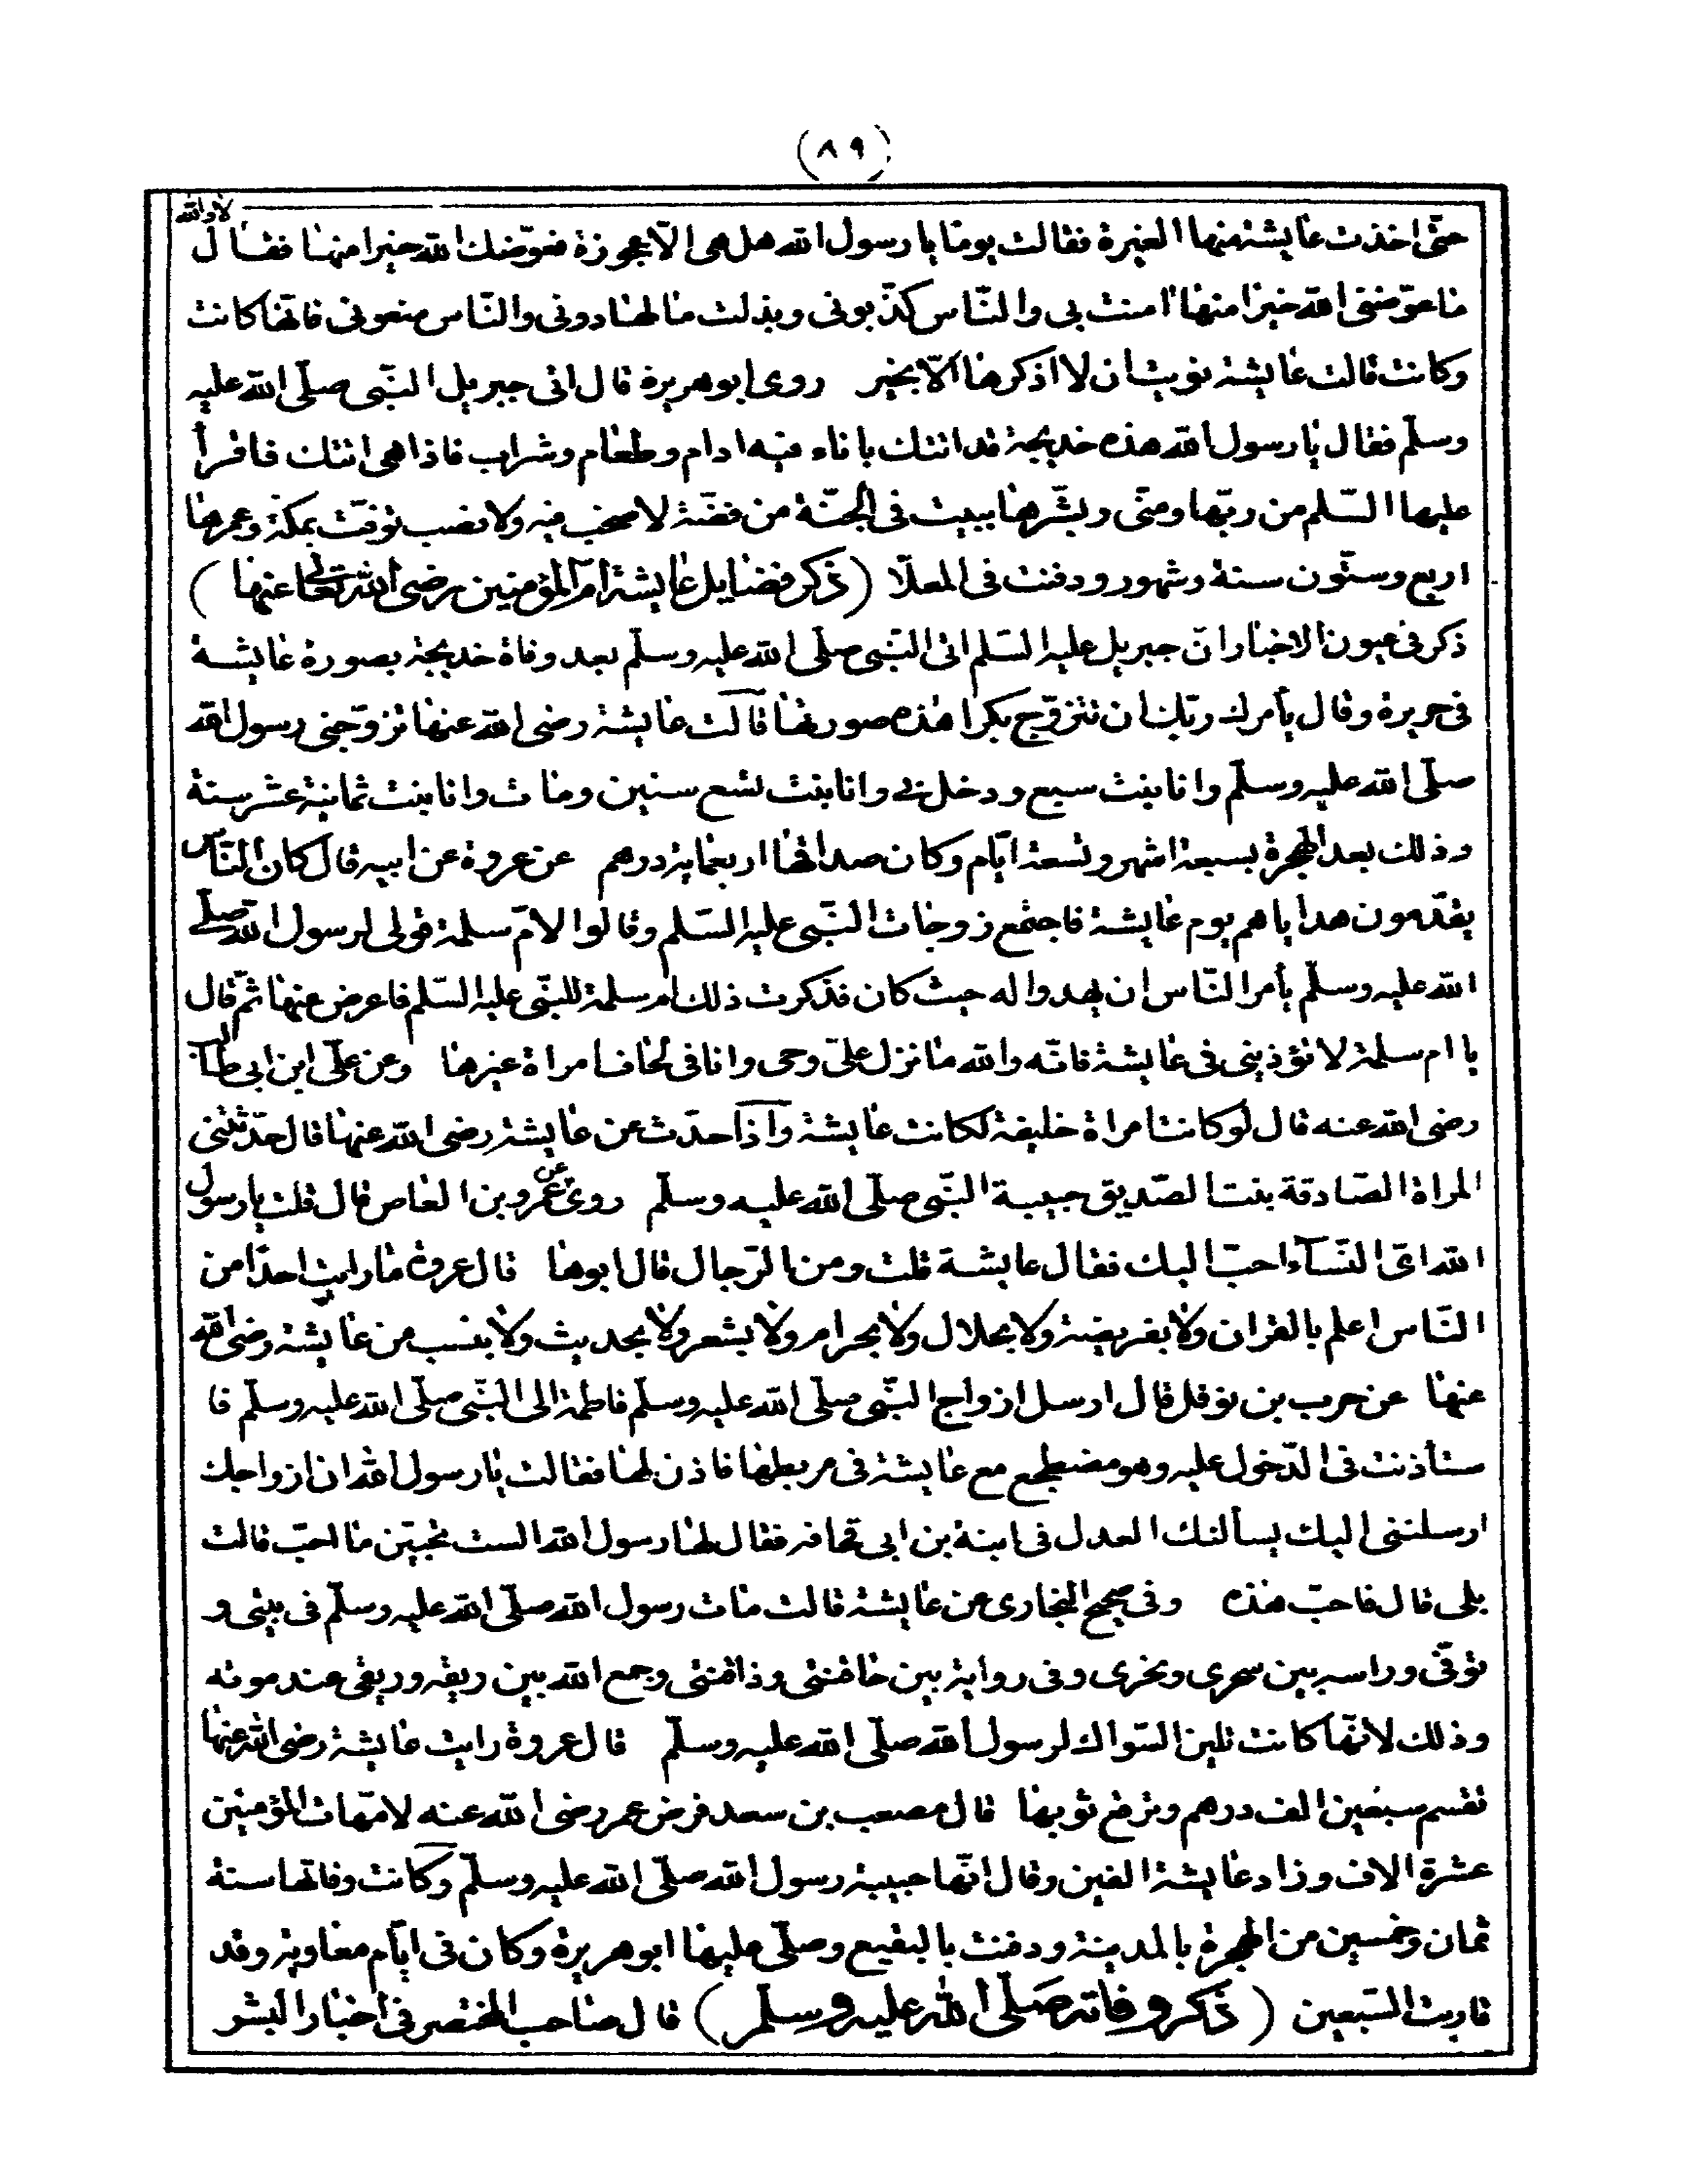 (٨٩)
حتّى اخذت عايشة منها الغيرة فقالت يومًا يا رسول الله هل هى الّا عجوزة فعوّضك الله خيرا منها فقال لا والله
ما عوّضنى الله خيرا منها امنت بى والنّاس كذّبونى وبذلت مالها دونى والنّاس منعونى فانّها كانت
وكانت قالت عايشة نويت ان لا اذكرها الّا بخير روى ابو هريرة قال اتى جبريل النّبى صلّى الله عليه
وسلّم فقال يا رسول الله هذه خديجة قد اتتك باناء فيه ادام وطعام وشراب فاذا هى اتتك فاقرأ
عليها السّلم من ربّها ومنّى وبشّرها ببيت فى الجنّة من فضّة لا صخب فيه ولا نصب توفّت بمكة وعمرها
اربع وستّون سنة وشهور ودفنت فى المعلّا (ذكر فضايل عايشة امّ المؤمنين رضى الله تعالى عنها)
ذكر فى عيون الاخبار انّ جبريل عليه السّلم اتى النّبى صلّى الله عليه وسلّم بعد وفاة خديجة بصورة عايشة
فى حريرة وقال يأمرك ربّك ان تتزوّج بكرا هذه صورتها قالت عايشة رضى الله عنها تزوّجنى رسول الله
صلّى الله عليه وسلّم وانا بنت سبع ودخل بى وانا بنت تسع سنين ومات وانا بنت ثمانية عشر سنة
وذلك بعد الهجرة بسبعة اشهر وتسعة ايّام وكان صداقها اربعماية درهم عن عروة عن ابيه قال كان النّاس
يقدّمون هداياهم يوم عايشة فاجتمع زوجات النّبى عليه السّلم وقالوا لامّ سلمة قولى لرسول الله صلّى
الله عليه وسلّم يأمر النّاس ان يهدوا له حيث كان فذكرت ذلك ام سلمة للنّبى عليه السّلم فاعرض عنها ثمّ قال
يا ام سلمة لا تؤذينى فى عايشة فانّه والله ما نزل علىّ وحى وانا فى لحاف امراة غيرها وعن علّى ابن ابى طالب
رضى الله عنه قال لو كانت امراة خليفة لكانت عايشة واذا حدّث عن عايشة رضى الله عنها قال حدّثتنى
المراة الصّادقة بنت الصّديق حبيبة النّبى صلّى الله عليه وسلّم روى عن عمرو بن العاص قال قلت يا رسول
الله اىّ النّسآء احبّ اليك فقال عايشة قلت ومن الرّجال قال ابوها قال عروة ما رايت احدًا من
النّاس اعلم بالقران ولا بفريضة ولا بحلال ولا بحرام ولا بشعر ولا بحديث ولا بنسب من عايشة رضى الله
عنها عن حرب بن نوفل قال ارسل ازواج النّبى صلّى الله عليه وسلّم فاطمة الى النّبى صلّى الله عليه وسلّم فا
ستأذنت فى الدّخول عليه وهو مضطجع مع عايشة فى مربطها فاذن لها فقالت يا رسول الله ان ازواجك
ارسلننى اليك يسألنك العدل فى ابنة بن ابى قحافه فقال لها رسول الله الست تحبّين ما احبّ قالت
بلى قال فاحبّ هذه وفى صحيح البخارى عن عايشة قالت مات رسول الله صلّى الله عليه وسلّم فى بيتى و
توفّى وراسه بين سحرى ونحرى وفى رواية بين حاقنتى وذاقنتى وجمع الله بين ريقه وريقى عند موته
وذلك لانّها كانت تلين السّواك لرسول الله صلّى الله عليه وسلّم قال عروة رايت عايشة رضى الله عنها
تقسم سبعين الف درهم وترقع ثوبها قال مصعب بن سعد فرض عمر رضى الله عنه لامّهات المؤمنين
عشرة الاف وزاد عايشة الفين وقال انّها حبيبة رسول الله صلّى الله عليه وسلّم وكانت وفاتها سنة
ثمان وخمسين من الهجرة بالمدينة ودفنت بالبقيع وصلّى عليها ابو هريرة وكان فى ايّام معاوية وقد
قاربت السّبعين (ذكر وفاته صلّى الله عليه وسلّم) قال صاحب المختصر فى اخبار البشر